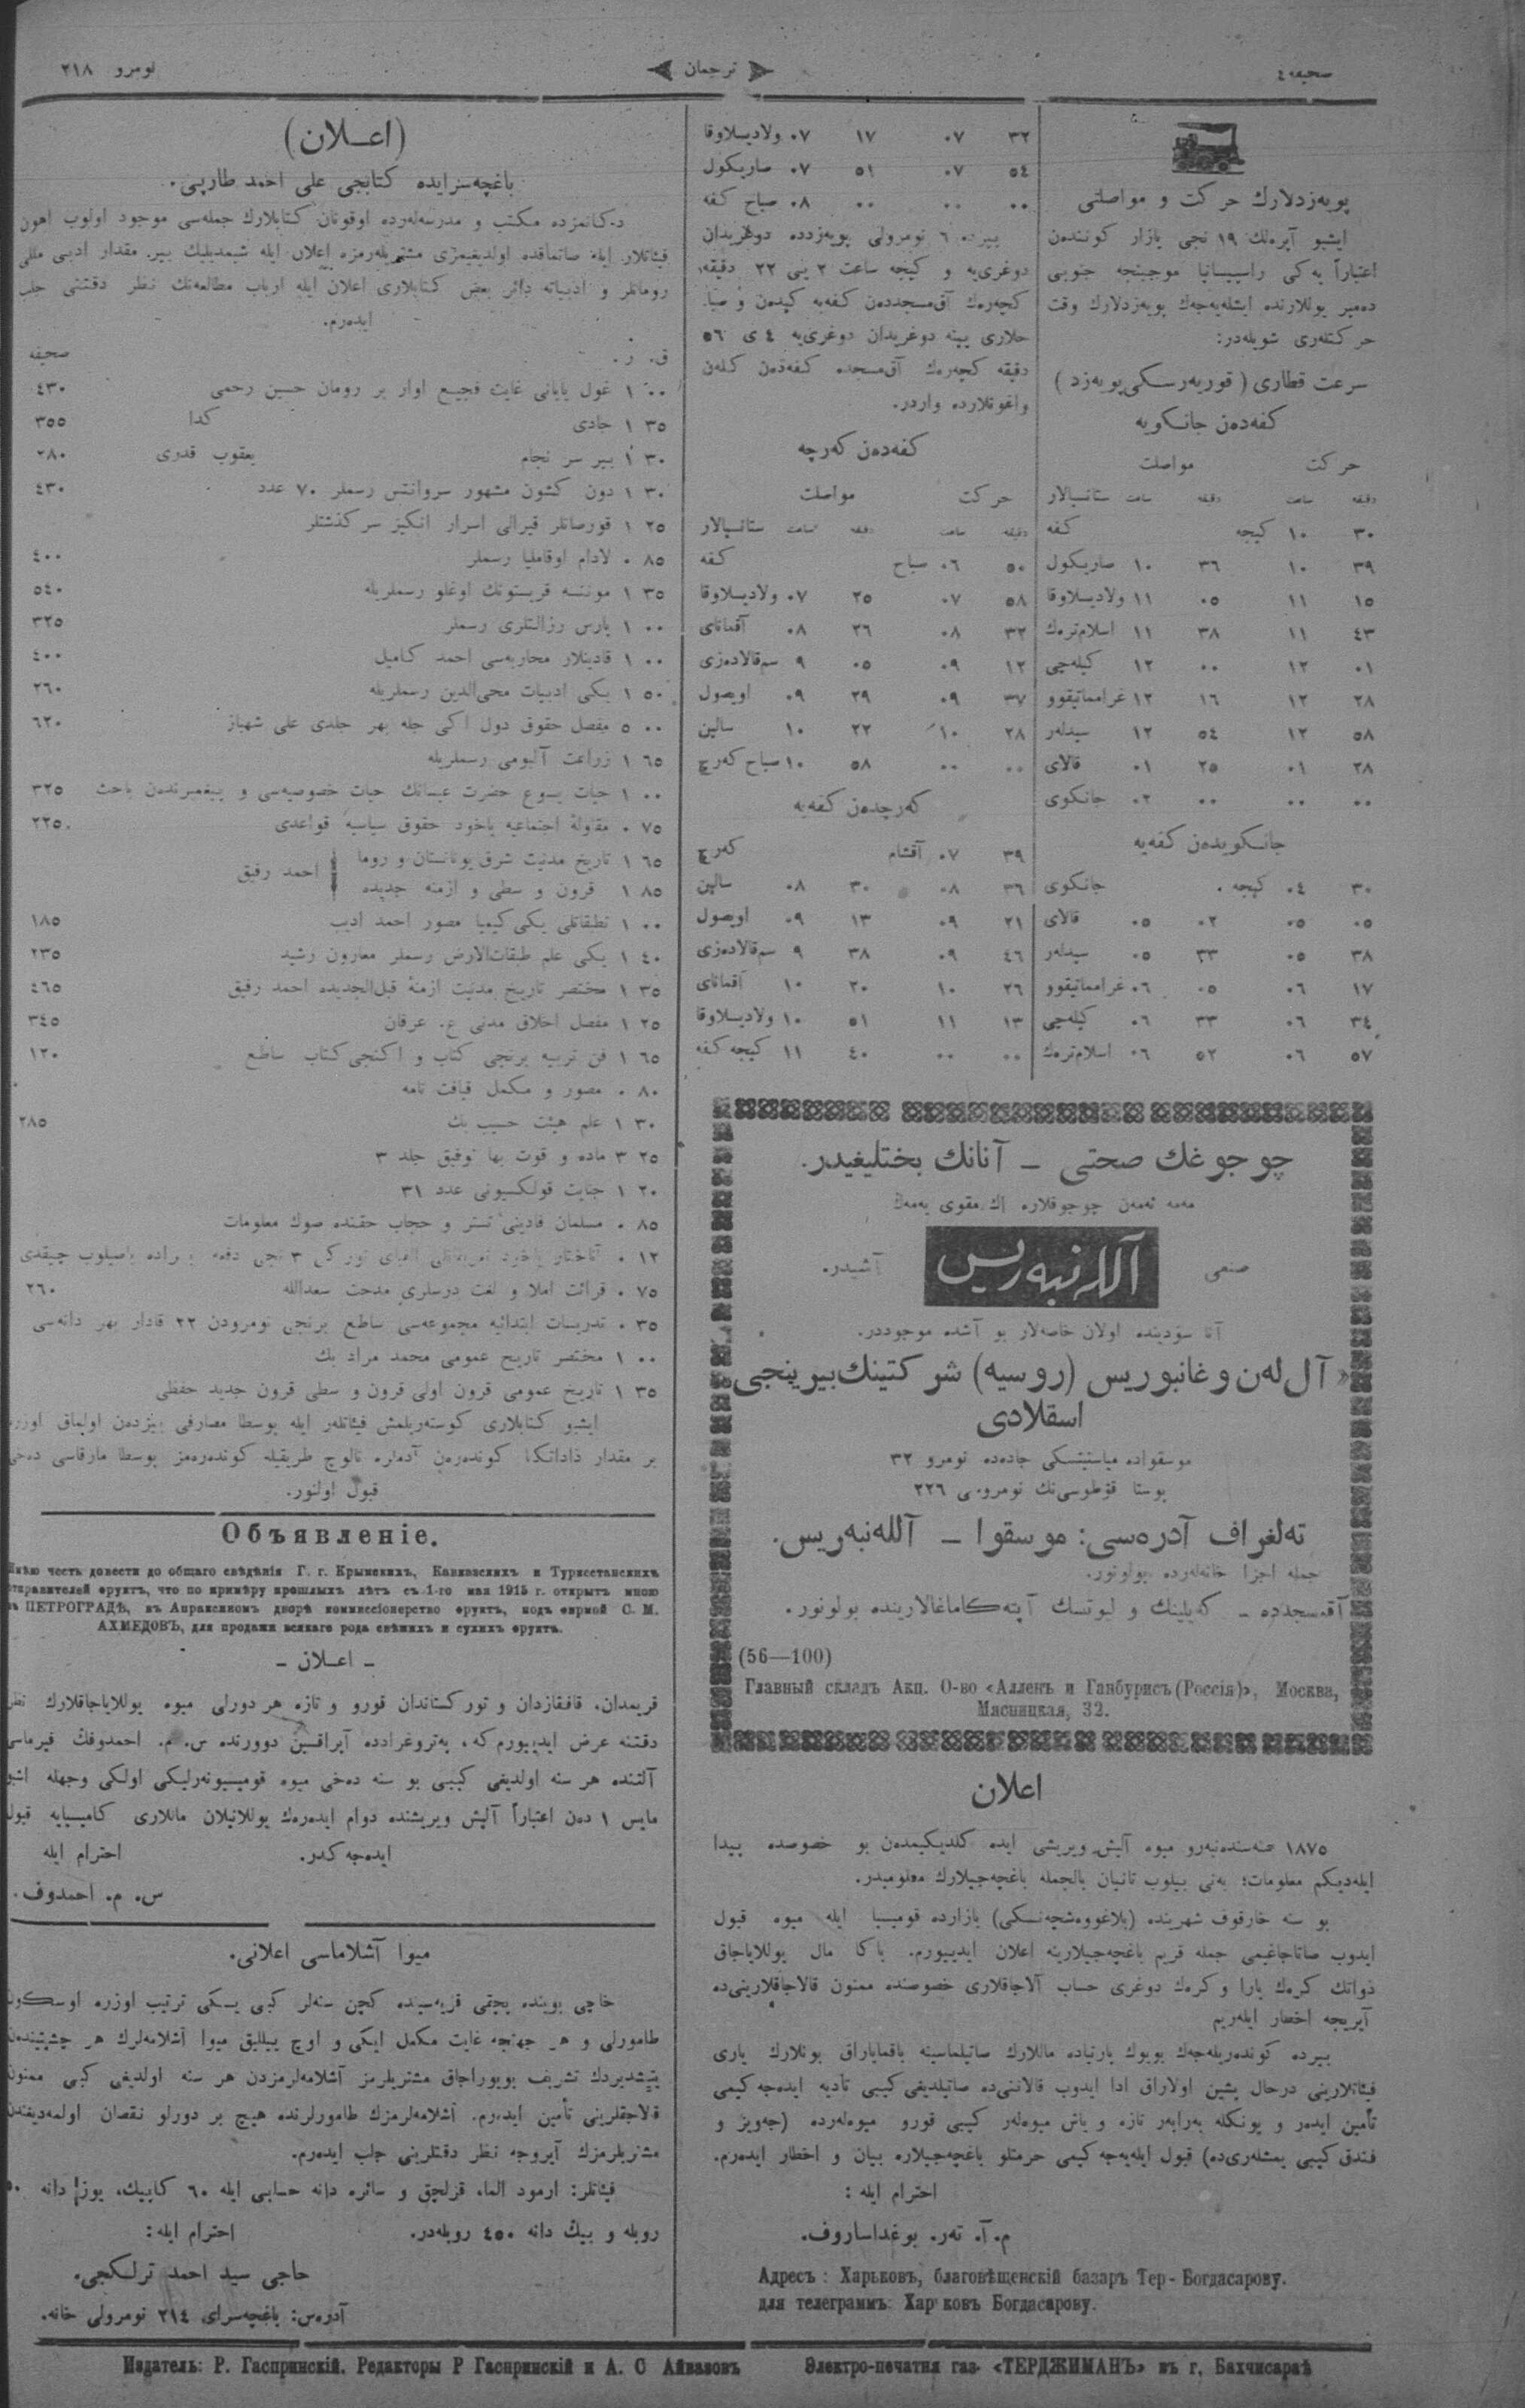 صحیفه ٤
ترجمان
نومرو ٢١٨
پویه‌زدلارك حرکت و مواصلتی
ایشبو آیره‌لك ١٩ نجی یازار کوننده‌ن
اعتباراً یه‌کی راسپیسانیا موجبنجه جنوبی
ده‌میر یوللارنده ایشله‌یه‌جه‌ك پویه‌زدلارك وقت
حرکتله‌ری شویله‌در:
سرعت قطاری (قوریه‌رسکی پویه‌زد)
کفه‌ده‌ن جانکویه
حرکت مواصلت
دقیقه ساعت دقیقه ساعت ستانسیالار
٣٠ ١٠ کیجه کفه
٣٩ ١٠ ٣٦ ١٠ صاریکول
١٥ ١١ ٠٥ ١١ ولادیسلاوقا
٤٣ ١١ ٣٨ ١١ اسلام‌تره‌ك
٠١ ١٢ ٠٠ ١٢ کیله‌چی
٢٨ ١٢ ١٦ ١٢ غراماتیقوو
٥٨ ١٢ ٥٤ ١٢ سیدلەر
٢٨ ٠١ ٢٥ ٠١ قالای
٠٠ ٠٠ ٠٠ ٠٢ جانکوی
جانکویده‌ن کفه‌یه
٣٠ ٠٤ کیجه جانکوی
٠٥ ٠٥ ٠٢ ٠٥ قالای
٣٨ ٠٥ ٣٣ ٠٥ سیدلەر
١٧ ٠٦ ٠٥ ٠٦ غراماتیقوو
٣٤ ٠٦ ٣٣ ٠٦ کیله‌چی
٥٧ ٠٦ ٥٢ ٠٦ اسلام‌تره‌ك
٣٢ ٠٧ ١٧ ٠٧ ولادیسلاوقا
٥٤ ٠٧ ٥١ ٠٧ صاریکول
٠٠ ٠٠ ٠٠ ٠٨ صباح کفه
بیرده ٦ نومرولی پویه‌زدده دوغریدان
دوغری‌یه و کیجه ساعت ٢ ینی ٢٢ دقیقه
کچه‌ره‌ك آق‌مسجددەن کفه‌یه کیدەن و صبا
حلاری یینه دوغریدان دوغری‌یه ٤ ی ٥٦
دقیقه کچه‌ره‌ك آق‌مسجده کفه‌ده‌ن کلەن
واغونلارده واردر.
کفه‌ده‌ن که‌رچه
حرکت مواصلت
دقیقه ساعت دقیقه ساعت ستانسیالار
٥٠ ٠٦ صباح کفه
٥٨ ٠٧ ٢٥ ٠٧ ولادیسلاوقا
٣٢ ٠٨ ٢٦ ٠٨ آقمانای
١٢ ٠٩ ٠٥ ٩ سم‌قالادەزی
٣٧ ٠٩ ٢٩ ٠٩ اویصول
٢٨ ١٠ ٢٢ ١٠ سالین
٠٠ ٠٠ ٥٨ ١٠ صباح که‌رچ
که‌رچدەن کفه‌یه
٣٩ ٠٧ آقشام که‌رچ
٣٦ ٠٨ ٣٠ ٠٨ سالین
٢١ ٠٩ ١٣ ٠٩ اویصول
٤٦ ٠٩ ٣٨ ٩ سم‌قالادەزی
٢٦ ١٠ ٢٠ ١٠ آقمانای
١٣ ١١ ٥١ ١٠ ولادیسلاوقا
٠٠ ٠٠ ٤٠ ١١ کیجه کفه
چوجوغك صحتی — آنانك بختلیغیدر.
مه‌مه ئه‌مه‌ن چوجوقلاره اڭ مقوی یه‌مه‌ك
صنعی آللەنبه‌ریس آشیدر.
آنا سوْدینده اولان خاصه‌لار بو آشده موجوددر.
«آل‌له‌ن و غانبوریس (روسیه) شرکتینك بیرینجی
اسقلادی
موسقواده میاسنیتسکی جاده‌ده نومرو ٣٢
پوستا قوطوسی‌نك نومروسی ٢٢٦
ته‌لغراف آدره‌سی: موسقوا — آللەنبه‌ریس.
جمله اجزا خانه‌له‌رده بولونور.
آقه‌سجدده — که‌یلینك و لیوتسك آپته‌کا‌ماغالارینده بولونور.
(56—100)
Главный складъ Акц. О-во «Алленъ и Ганбурисъ (Россія)», Москва,
Мясницкая, 32.
اعلان
١٨٧٥ سنه‌سنده‌نبه‌رو میوه آلیش‌ویریشی ایده کلدیکیمدەن بو خصوصده پیدا
ایله‌دیکم معلومات؛ به‌نی بیلوب تانیان بالجمله باغچه‌جیلارك معلومیدر.
بو سنه خارقوف شهرینده (بلاغووه‌شچه‌نسکی) بازارده قومیسیا ایله میوه قبول
ایدوب صاتاجاغیمی جمله قریم باغچه‌جیلارینه اعلان ایدییورم. باكا مال یوللایاجاق
ذواتك کره‌ك پارا و کره‌ك دوغری حساب آلاجاقلاری خصوصنده ممنون قالاجاقلارینی‌ده
آیریجه اخطار ایله‌ریم
بیرده کوندەریله‌جه‌ك بویوك پارتیاده ماللارك صاتیلماسینه باقمایاراق بونلارك یاری
فیئاتلارینی درحال پشین اولاراق ادا ایدوب قالاننی‌ده صاتیلدیغی کیبی تأدیه ایده‌جه‌کیمی
تأمین ایده‌ر و بونكله به‌رابه‌ر تازه و یاش میوه‌له‌ر کیبی قورو میوه‌له‌رده (جه‌ویز و
فندق کیبی یمشله‌ری‌ده) قبول ایله‌یه‌جه‌کیمی حرمتلو باغچه‌جیلاره بیان و اخطار ایده‌رم.
احترام ایله :
م. آ. ته‌ر. بوغداساروف.
Адресъ : Харьковъ, благовѣщенскій базаръ Тер-Богдасарову.
для телеграммъ: Харьковъ Богдасарову.
(اعلان)
باغچه‌سرایده کتابجی علی احمد طارپی.
دکانمزده مکتب و مدرسه‌له‌رده اوقونان کتابلارك جمله‌سی موجود اولوب اهون
فیئاتلار ایله صاتماقده اولدیغیمزی مشتریله‌رمزه اعلان ایله شیمدیلیك بیر مقدار ادبی مللی
رومانلر و ادبیاته دائر بعض کتابلاری اعلان ایله ارباب مطالعه‌نك نظر دقتنی جلب
ایده‌رم.
ق. ر. صحیفه
٠٠ ١ غول یابانی غایت فجیع اوار بر رومان حسین رحمی ٤٣٠
٣٥ ١ جادی کذا ٣٥٥
٣٠ ١ بیر سر نجام یعقوب قدری ٢٨٠
٣٠ ١ دون کشون مشهور سروانتس رسملر ٧٠ عدد ٤٣٠
٢٥ ١ قورصانلر قیرالی اسرار انکیز سرکذشتلر
٨٥ ٠ لادام اوقاملیا رسملر ٤٠٠
٣٥ ١ مونتسه قریستونك اوغلو رسملریله ٥٤٠
٠٠ ١ پارس رزالتلری رسملر ٣٢٥
٠٠ ١ قادینلار محاربه‌سی احمد کامیل ٤٠٠
٥٠ ١ یکی ادبیات محی‌الدین رسملریله ٢٦٠
٠٠ ٥ مفصل حقوق دول اکی جله بهر جلدی علی شهباز ٦٢٠
٦٥ ١ زراعت آلبومی رسملریله
٠٠ ١ حیات یسوع حضرت عیسانك حیات خصوصیه‌سی و پیغمبرندەن باحث ٣٢٥
٧٥ ٠ مقاولهٔ اجتماعیه یاخود حقوق سیاسیه قواعدی ٢٢٥
٦٥ ١ تاریخ مدنیت شرق یونانستان و روما
٨٥ ١ قرون و سطی و ازمنه جدیده
احمد رفیق
٠٠ ١ تطبقاتلی یکی کیمیا مصور احمد ادیب ١٨٥
٤٠ ١ یکی علم طبقات‌الارض رسملر معارون رشید ٢٣٥
٣٥ ١ مختصر تاریخ مدنیت ازمنهٔ قبل‌الجدیده احمد رفیق ٤٦٥
٢٥ ١ مفصل اخلاق مدنی ع. عرفان ٣٤٥
٦٥ ١ فن تربیه برنجی کتاب و اکنجی کتاب ساطع ١٢٠
٨٠ ٠ مصور و مکمل قیافت نامه
٣٠ ١ علم هیئت حسیب بك ٢٨٥
٢٥ ٣ ماده و قوت بها توفیق جلد ٣
٢٠ ١ جنایت قولکسیونی عدد ٣١
٨٥ ٠ مسلمان قادینی تستر و حجاب حقنده صوك معلومات
١٢ ٠ آناختار یاخود الفبای تورکی ٣ نجی دفعه باصیلوب چیقدی
٧٥ ٠ قرائت املا و لغت درسلری مدحت سعدالله ٢٦٠
٣٥ ٠ تدریسات ابتدائیه مجموعه‌سی ساطع برنجی نومرودن ٢٢ قادار بهر دانه‌سی
٠٠ ١ مختصر تاریخ عمومی محمد مراد بك
٣٥ ١ تاریخ عمومی قرون اولی قرون و سطی قرون جدید حفظی
ایشبو کتابلاری کوسته‌ریلمش فیئاتله‌ر ایله پوسطا مصارفی بیزدەن اولماق اوزره
بر مقدار ذاداتکا کوندەرەن آدملره نالوج طریقیله کوندەرەمز پوسطا مارقاسی دەخی
قبول اولنور.
Объявленіе.
Имѣю честь довести до общаго свѣдѣнія Г. г. Крымскихъ, Кавказскихъ и Туркестанскихъ
отправителей фруктъ, что по примѣру прошлыхъ лѣтъ съ 1-го мая 1915 г. открытъ мною
въ ПЕТРОГРАДѢ, въ Апраксиномъ дворѣ коммиссіонерство фруктъ, подъ фирмой С. М.
АХМЕДОВЪ, для продажи всякаго рода свѣжихъ и сухихъ фруктъ.
— اعلان —
قریمدان، قافقازدان و تورکستاندان قورو و تازه هر دورلی میوه یوللایاجاقلارك نظر
دقتنه عرض ایدییورم که، په‌تروغرادده آپراقسین دوورنده س. م. احمدوفڭ فیرماسی
آلتنده هر سنه اولدیغی کیبی بو سنه دەخی میوه قومیسیونه‌رلیکی اولکی وجهله اشبو
مایس ١ دەن اعتباراً آلیش ویریشنده دوام ایدەرەك یوللانیلان ماللاری کامیسیایه قبول
ایده‌جه‌کدر. احترام ایله
س. م. احمدوف.
میوا آشلاماسی اعلانی.
خاچی بوینده یجقی قریه‌سینده کچن سنه‌لر کبی یسکی ترتیب اوزره اوسکون
طامورلی و هر جهتجه غایت مکمل ایکی و اوچ ییللیق میوا آشلامه‌لرك هر چشیتیندەن
یتیشدیردك تشریف بویوراجاق مشتریلرمز آشلامه‌لرمزدن هر سنه اولدیغی کبی ممنون
قالاجقلرینی تأمین ایده‌رم. آشلامه‌لرمزك طامورلرنده هیچ بر دورلو نقصان اولمه‌دیغندن
مشتریلرمزك آیروجه نظر دقتلرینی جلب ایده‌رم.
فیئاتلر: ارمود الما، قزلچق و سائره دانه حسابی ایله ٦٠ کاپیك، یوز دانه ٥٠
روبله و بیڭ دانه ٤٥٠ روبله‌در. احترام ایله:
حاجی سید احمد ترلکجی.
آدرەس: باغچه‌سرای ٢١٤ نومرولی خانه.
Издатель: Р. Гаспринскій. Редакторы Р Гаспринскій и А. С Айвазовъ
Электро-печатня газ. «ТЕРДЖИМАНЪ» въ г. Бахчисараѣ